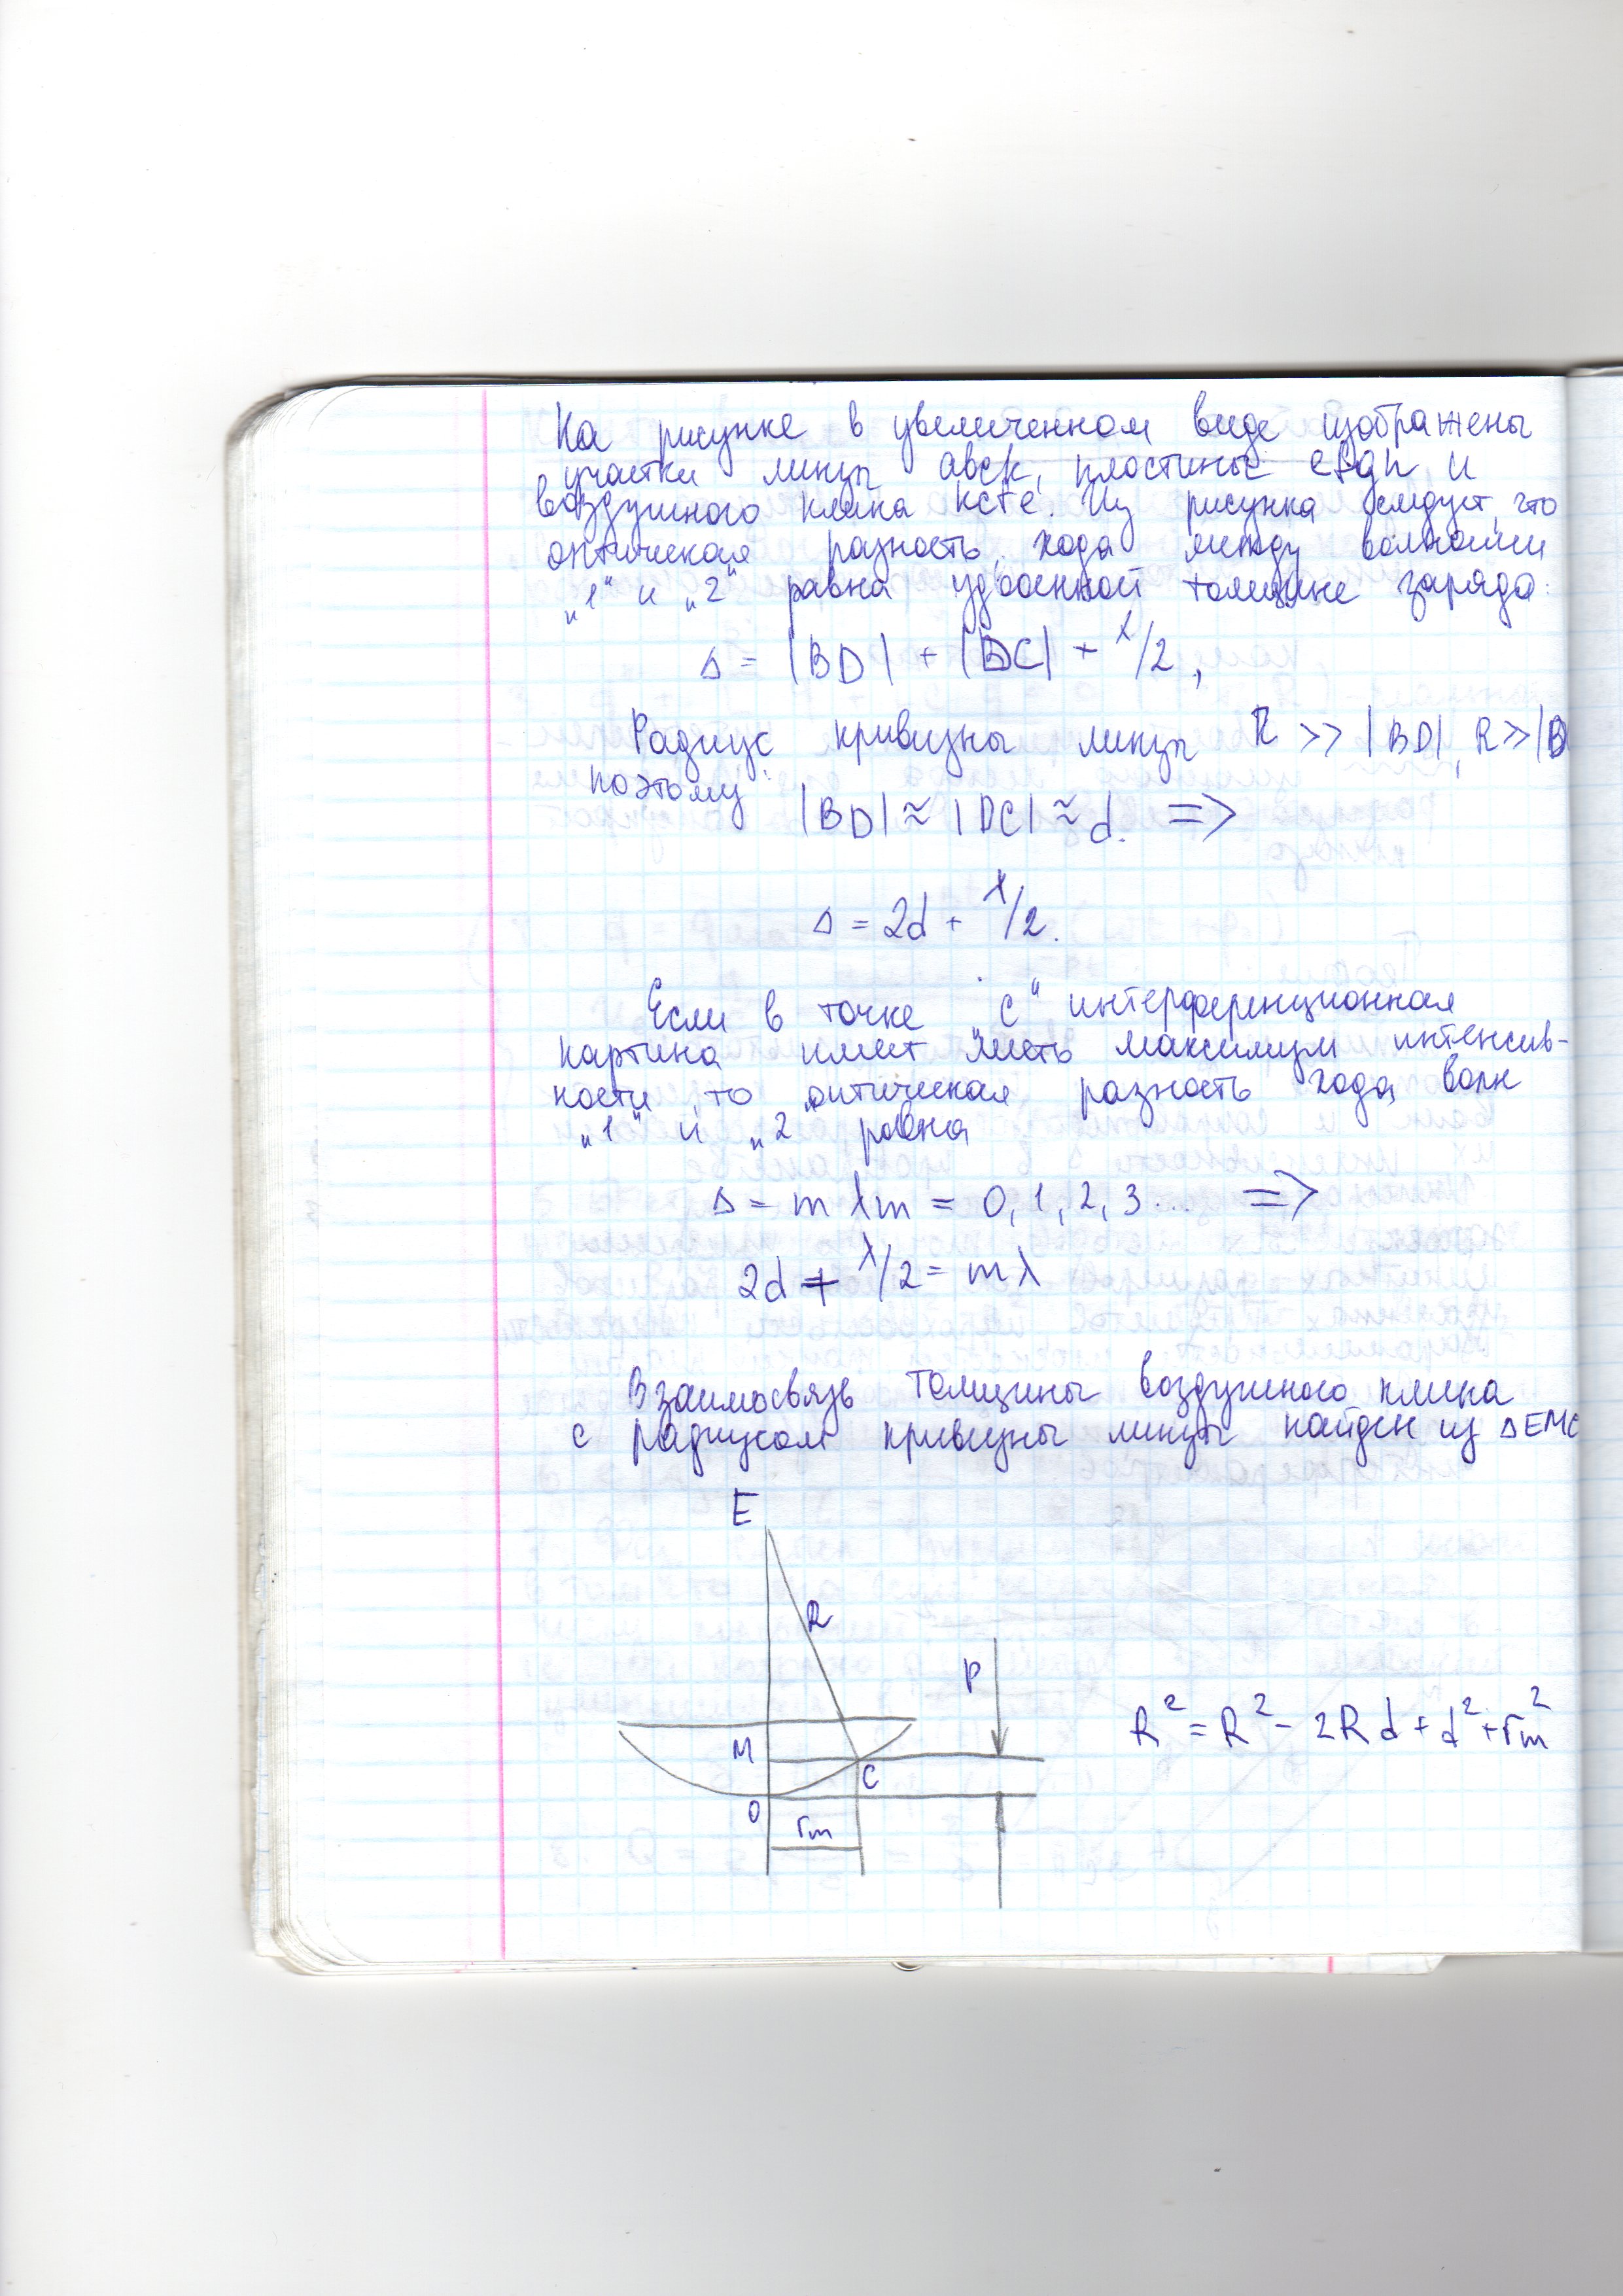 На рисунке в увеличенном виде изображены
участки линзы авск, пластины efgh и
воздушного клина ксfе. Из рисунка следует, что
оптическая разность хода между волнами
„1“ и „2“ равна удвоенной толщине заряда:
Δ = |BD| + |DC| + λ/2,
Радиус кривизны линзы R >> |BD|, R >> |B
поэтому
|BD| ≈ |DC| ≈ d. =>
Δ = 2d + λ/2.
Если в точке „С“ интерференционная
картина имеет место максимум интенсив-
ности, то оптическая разность хода волн
„1“ и „2“ равна
Δ = m λm = 0, 1, 2, 3... =>
2d + λ/2 = mλ
Взаимосвязь толщины воздушного клина
с радиусом кривизны линзы найдем из ΔEMC
E
R
P
R² = R² - 2Rd + d² + rm²
M
C
O
rm